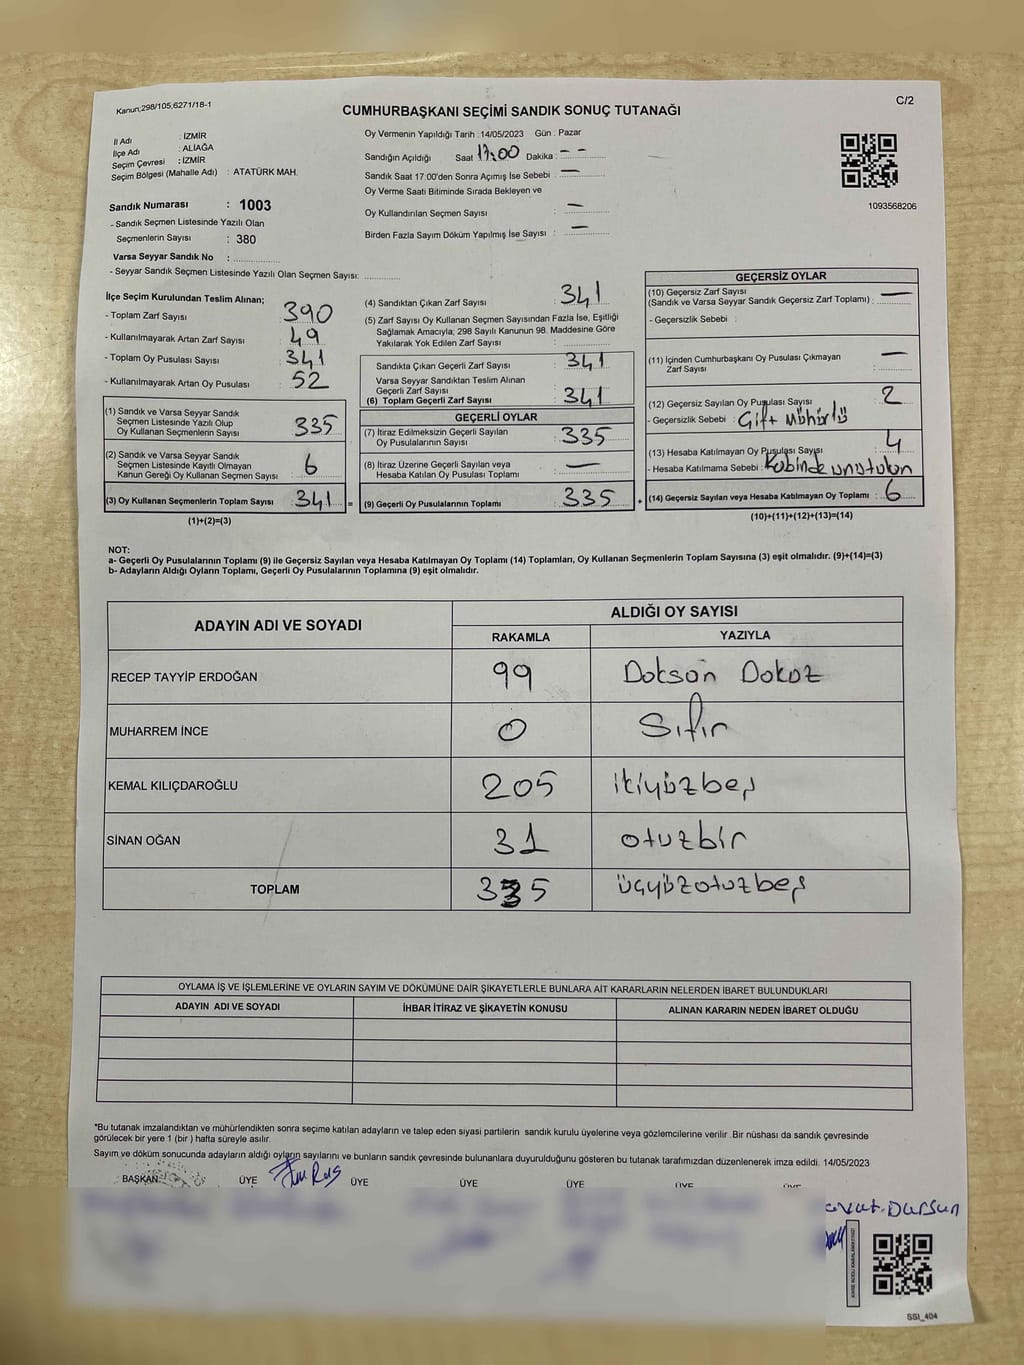 Kanun;298/105;6271/18-1
C/2
CUMHURBAŞKANI SEÇİMİ SANDIK SONUÇ TUTANAĞI
İl Adı : İZMİR
İlçe Adı : ALİAĞA
Seçim Çevresi : İZMİR
Seçim Bölgesi (Mahalle Adı) : ATATÜRK MAH.
Sandık Numarası : 1003
- Sandık Seçmen Listesinde Yazılı Olan
Seçmenlerin Sayısı : 380
Varsa Seyyar Sandık No :
- Seyyar Sandık Seçmen Listesinde Yazılı Olan Seçmen Sayısı:
Oy Vermenin Yapıldığı Tarih : 14/05/2023 Gün : Pazar
Sandığın Açıldığı Saat 17:00 Dakika : - -
Sandık Saat 17:00'den Sonra Açımış İse Sebebi : —
Oy Verme Saati Bitiminde Sırada Bekleyen ve
Oy Kullandırılan Seçmen Sayısı : —
Birden Fazla Sayım Döküm Yapılmış İse Sayısı : —
1093568206
İlçe Seçim Kurulundan Teslim Alınan;
- Toplam Zarf Sayısı 390
- Kullanılmayarak Artan Zarf Sayısı 49
- Toplam Oy Pusulası Sayısı 341
- Kullanılmayarak Artan Oy Pusulası 52
(1) Sandık ve Varsa Seyyar Sandık
Seçmen Listesinde Yazılı Olup
Oy Kullanan Seçmenlerin Sayısı 335
(2) Sandık ve Varsa Seyyar Sandık
Seçmen Listesinde Kayıtlı Olmayan
Kanun Gereği Oy Kullanan Seçmen Sayısı 6
(3) Oy Kullanan Seçmenlerin Toplam Sayısı 341 =
(1)+(2)=(3)
(4) Sandıktan Çıkan Zarf Sayısı : 341
(5) Zarf Sayısı Oy Kullanan Seçmen Sayısından Fazla İse, Eşitliği
Sağlamak Amacıyla; 298 Sayılı Kanunun 98. Maddesine Göre
Yakılarak Yok Edilen Zarf Sayısı :
Sandıkta Çıkan Geçerli Zarf Sayısı : 341
Varsa Seyyar Sandıktan Teslim Alınan
Geçerli Zarf Sayısı
(6) Toplam Geçerli Zarf Sayısı : 341
GEÇERLİ OYLAR
(7) İtiraz Edilmeksizin Geçerli Sayılan
Oy Pusulalarının Sayısı : 335
(8) İtiraz Üzerine Geçerli Sayılan veya
Hesaba Katılan Oy Pusulası Toplamı : —
(9) Geçerli Oy Pusulalarının Toplamı : 335 +
GEÇERSİZ OYLAR
(10) Geçersiz Zarf Sayısı —
(Sandık ve Varsa Seyyar Sandık Geçersiz Zarf Toplamı) :
- Geçersizlik Sebebi :
(11) İçinden Cumhurbaşkanı Oy Pusulası Çıkmayan —
Zarf Sayısı :
(12) Geçersiz Sayılan Oy Pusulası Sayısı : 2
- Geçersizlik Sebebi : Çift Mühürlü
(13) Hesaba Katılmayan Oy Pusulası Sayısı : 4
- Hesaba Katılmama Sebebi : Kabinde unutulan
(14) Geçersiz Sayılan veya Hesaba Katılmayan Oy Toplamı : 6
(10)+(11)+(12)+(13)=(14)
NOT:
a- Geçerli Oy Pusulalarının Toplamı (9) ile Geçersiz Sayılan veya Hesaba Katılmayan Oy Toplamı (14) Toplamları, Oy Kullanan Seçmenlerin Toplam Sayısına (3) eşit olmalıdır. (9)+(14)=(3)
b- Adayların Aldığı Oyların Toplamı, Geçerli Oy Pusulalarının Toplamına (9) eşit olmalıdır.
ADAYIN ADI VE SOYADI ALDIĞI OY SAYISI
RAKAMLA YAZIYLA
RECEP TAYYİP ERDOĞAN 99 Doksan Dokuz
MUHARREM İNCE 0 Sıfır
KEMAL KILIÇDAROĞLU 205 ikiyüzbeş
SİNAN OĞAN 31 otuzbir
TOPLAM 335 üçyüzotuzbeş
OYLAMA İŞ VE İŞLEMLERİNE VE OYLARIN SAYIM VE DÖKÜMÜNE DAİR ŞİKAYETLERLE BUNLARA AİT KARARLARIN NELERDEN İBARET BULUNDUKLARI
ADAYIN ADI VE SOYADI İHBAR İTİRAZ VE ŞİKAYETİN KONUSU ALINAN KARARIN NEDEN İBARET OLDUĞU
*Bu tutanak imzalandıktan ve mühürlendikten sonra seçime katılan adayların ve talep eden siyasi partilerin sandık kurulu üyelerine veya gözlemcilerine verilir .Bir nüshası da sandık çevresinde
görülecek bir yere 1 (bir ) hafta süreyle asılır.
Sayım ve döküm sonucunda adayların aldığı oyların sayılarını ve bunların sandık çevresinde bulunanlara duyurulduğunu gösteren bu tutanak tarafımızdan düzenlenerek imza edildi. 14/05/2023
BAŞKAN ÜYE ÜYE ÜYE ÜYE ÜYE ÜYE
Dursun
SSI_404